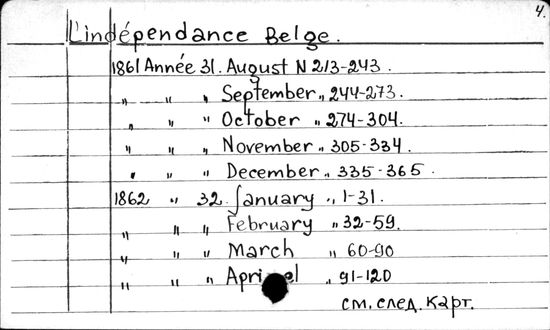 4.
L'indépendance Belge.
1861 Année 31. August N 213-243.
„ „ „ September „ 244-273.
„ „ „ October „ 274-304.
„ „ „ November „ 305-334.
„ „ „ December „ 335-365.
1862 „ 32. January „ 1-31.
„ „ „ February „ 32-59.
„ „ „ March „ 60-90
„ „ „ April „ 91-120
см. след. карт.